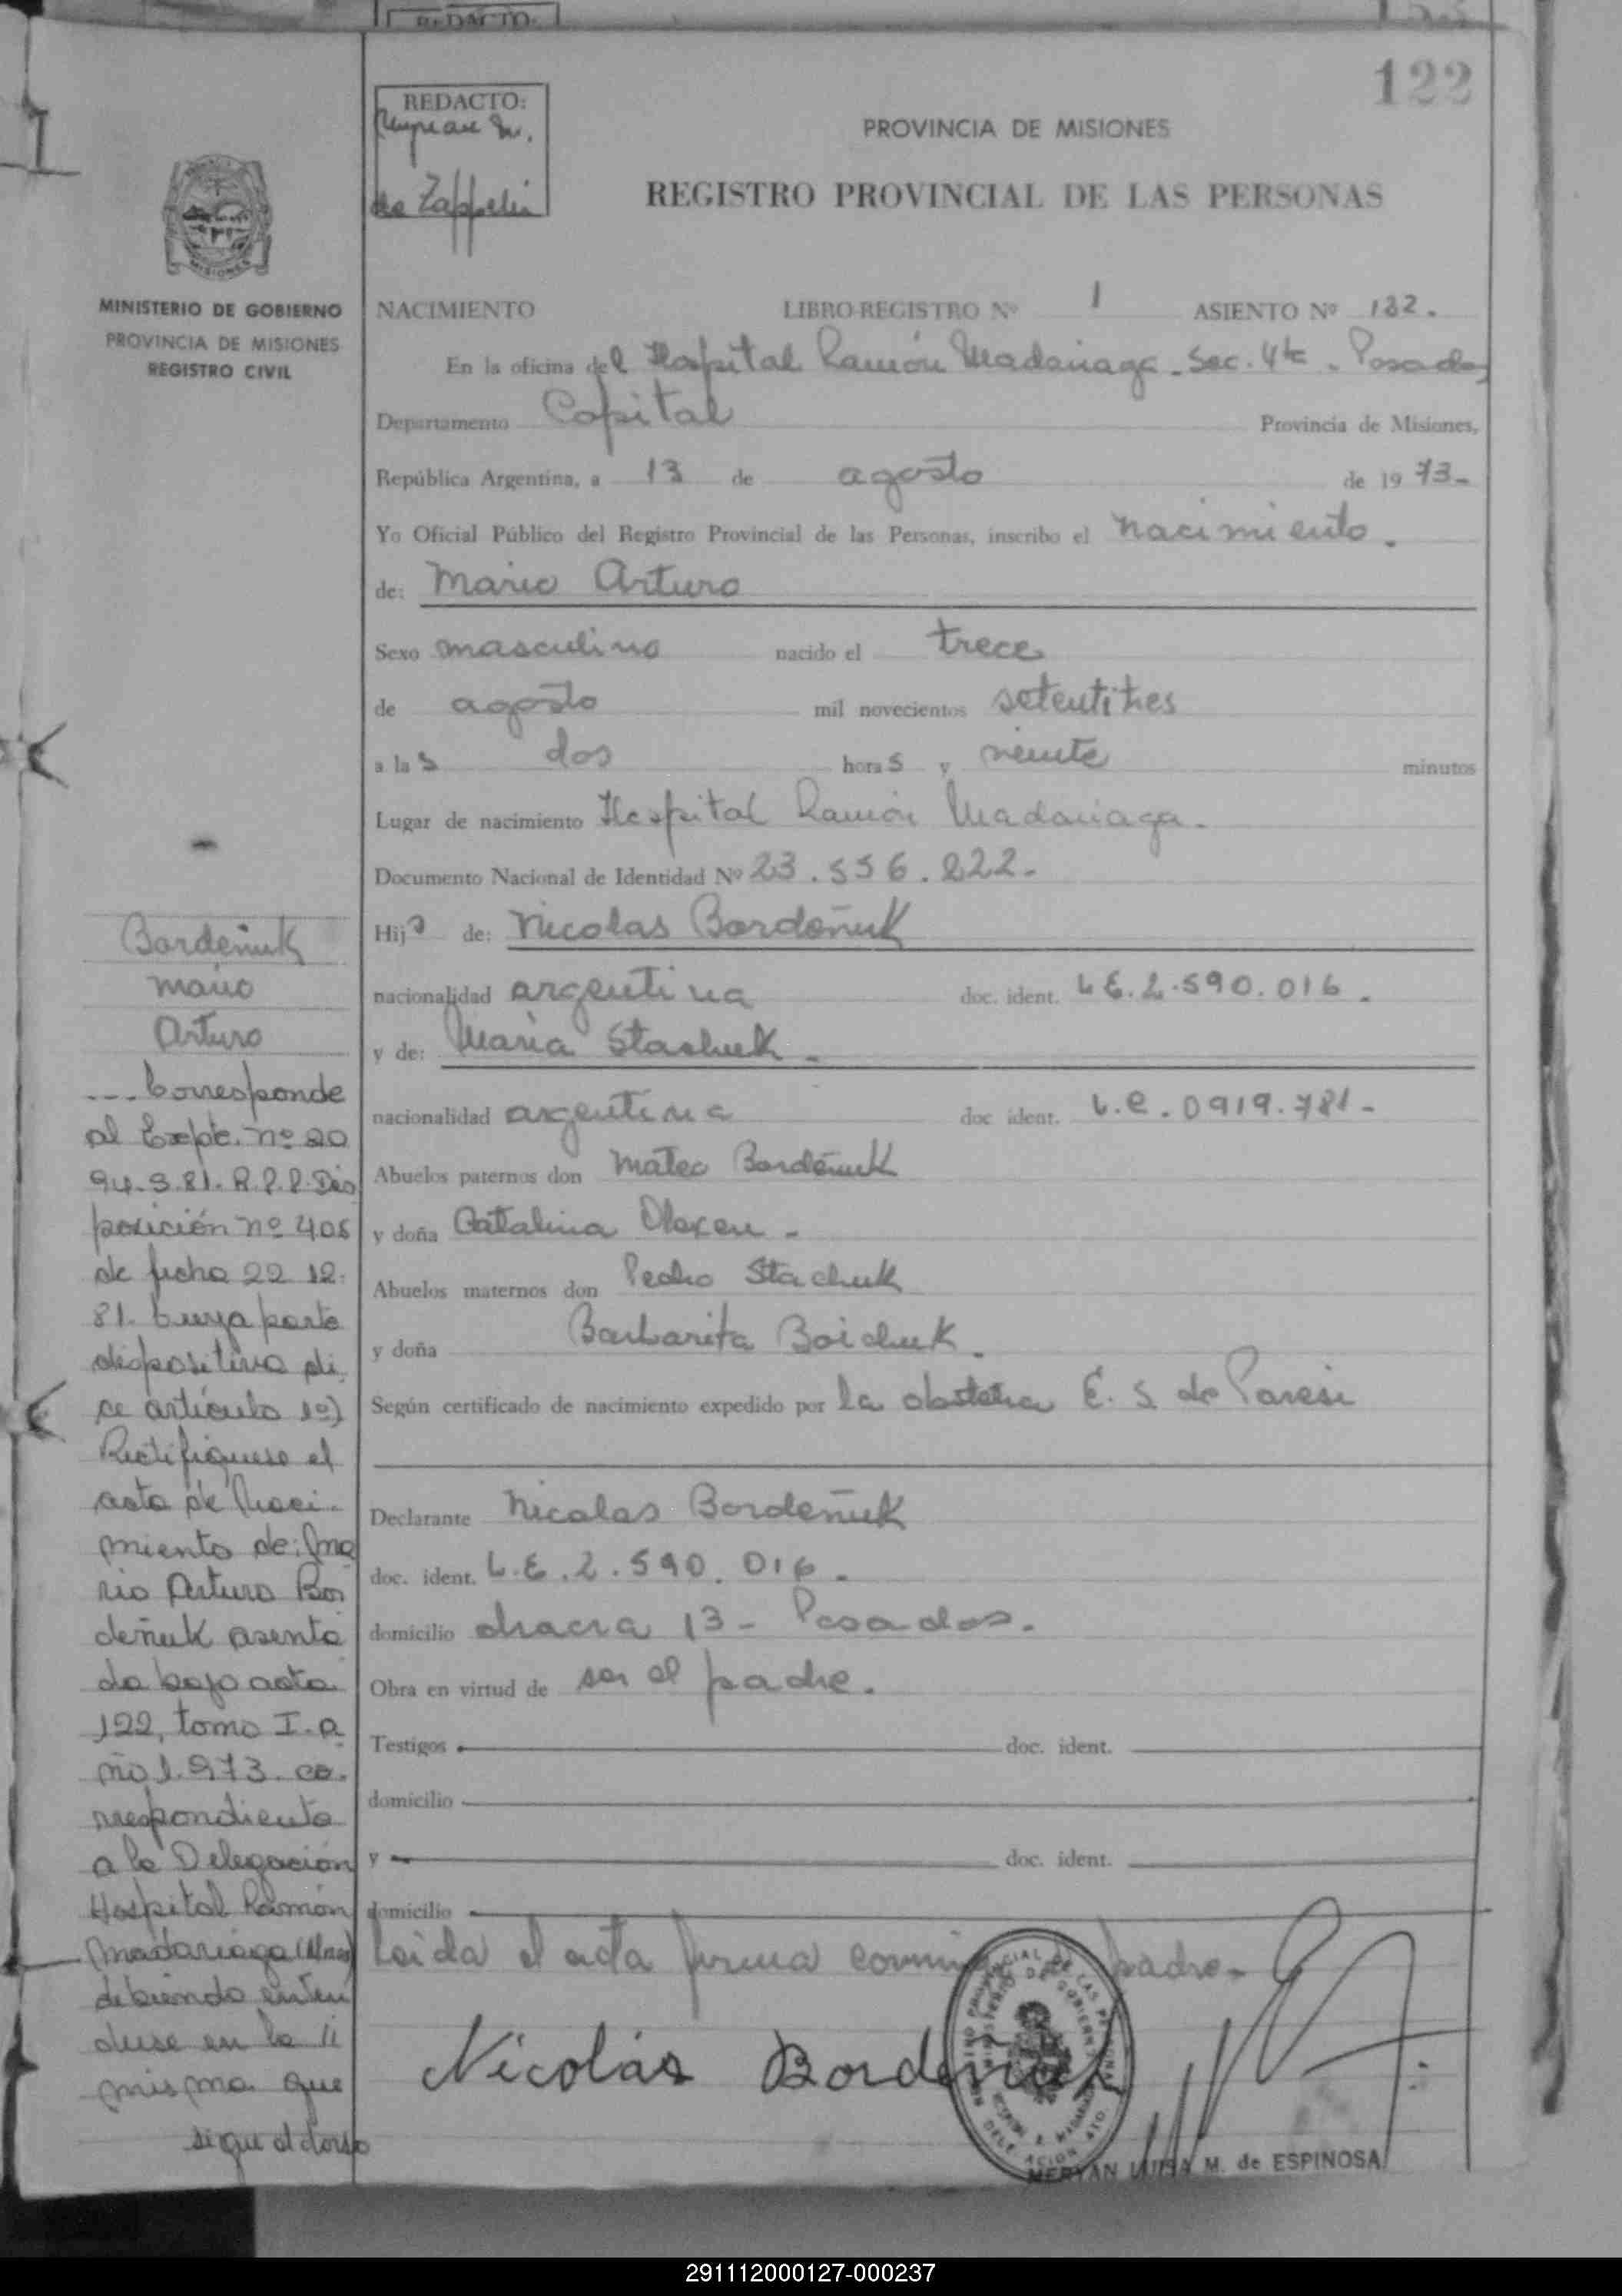 REDACTO:
122
REDACTO:
de Zappelin
PROVINCIA DE MISIONES
REGISTRO PROVINCIAL DE LAS PERSONAS
MISIONES
MINISTERIO DE GOBIERNO
PROVINCIA DE MISIONES
REGISTRO CIVIL
NACIMIENTO LIBRO-REGISTRO Nº 1 ASIENTO Nº 122.
En la oficina del Hospital Ramón Madariaga - Sec. 4ta - Posadas
Departamento Capital Provincia de Misiones,
República Argentina, a 13 de agosto de 1973-
Yo Oficial Público del Registro Provincial de las Personas, inscribo el nacimiento.
de: Mario Arturo
Sexo masculino nacido el trece
de agosto mil novecientos setentitres
a las dos horas y veinte minutos
Lugar de nacimiento Hospital Ramón Madariaga.
Documento Nacional de Identidad Nº 23.556.222-
Hijo de: Nicolas Bordeñuk
nacionalidad argentina doc. ident. L.E.2.590.016.
y de: María Stachuk.
nacionalidad argentina doc ident. L.C.0919.781-
Abuelos paternos don Mateo Bordeñuk
y doña Catalina Olexen -
Abuelos maternos don Pedro Stachuk
y doña Barbarita Boichuk.
Según certificado de nacimiento expedido por la obstetra E. S. de Paresi
Declarante Nicolas Bordeñuk
doc. ident. L.E.2.590.016.
domicilio chacra 13 - Posadas.
Obra en virtud de ser el padre.
Testigos doc. ident.
domicilio
y doc. ident.
domicilio
Leida el acta firma conmigo padre.
Nicolás Bordeñuk
MERYAN LUISA M. de ESPINOSA
Bordeñuk
Mario
Arturo
--- Corresponde
al Expte. nº 20
94-S.81. R.P.P. Dis
posición nº 406
de fecha 22 12.
81. Cuya parte
dispositiva di
ce artículo 1º)
Rectifiquese el
acta de Naci-
miento de: Ma
rio Arturo Bor
deñuk asenta
da bajo acta
122, tomo I. a
ño 1.973. co.
rrespondiente
a la Delegación
Hospital Ramón
Madariaga
debiendo enten
derse en la
misma que
sigue al dorso
291112000127-000237